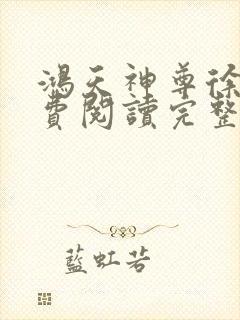 鴻天神尊徐
費閱讀完整
藍虹若